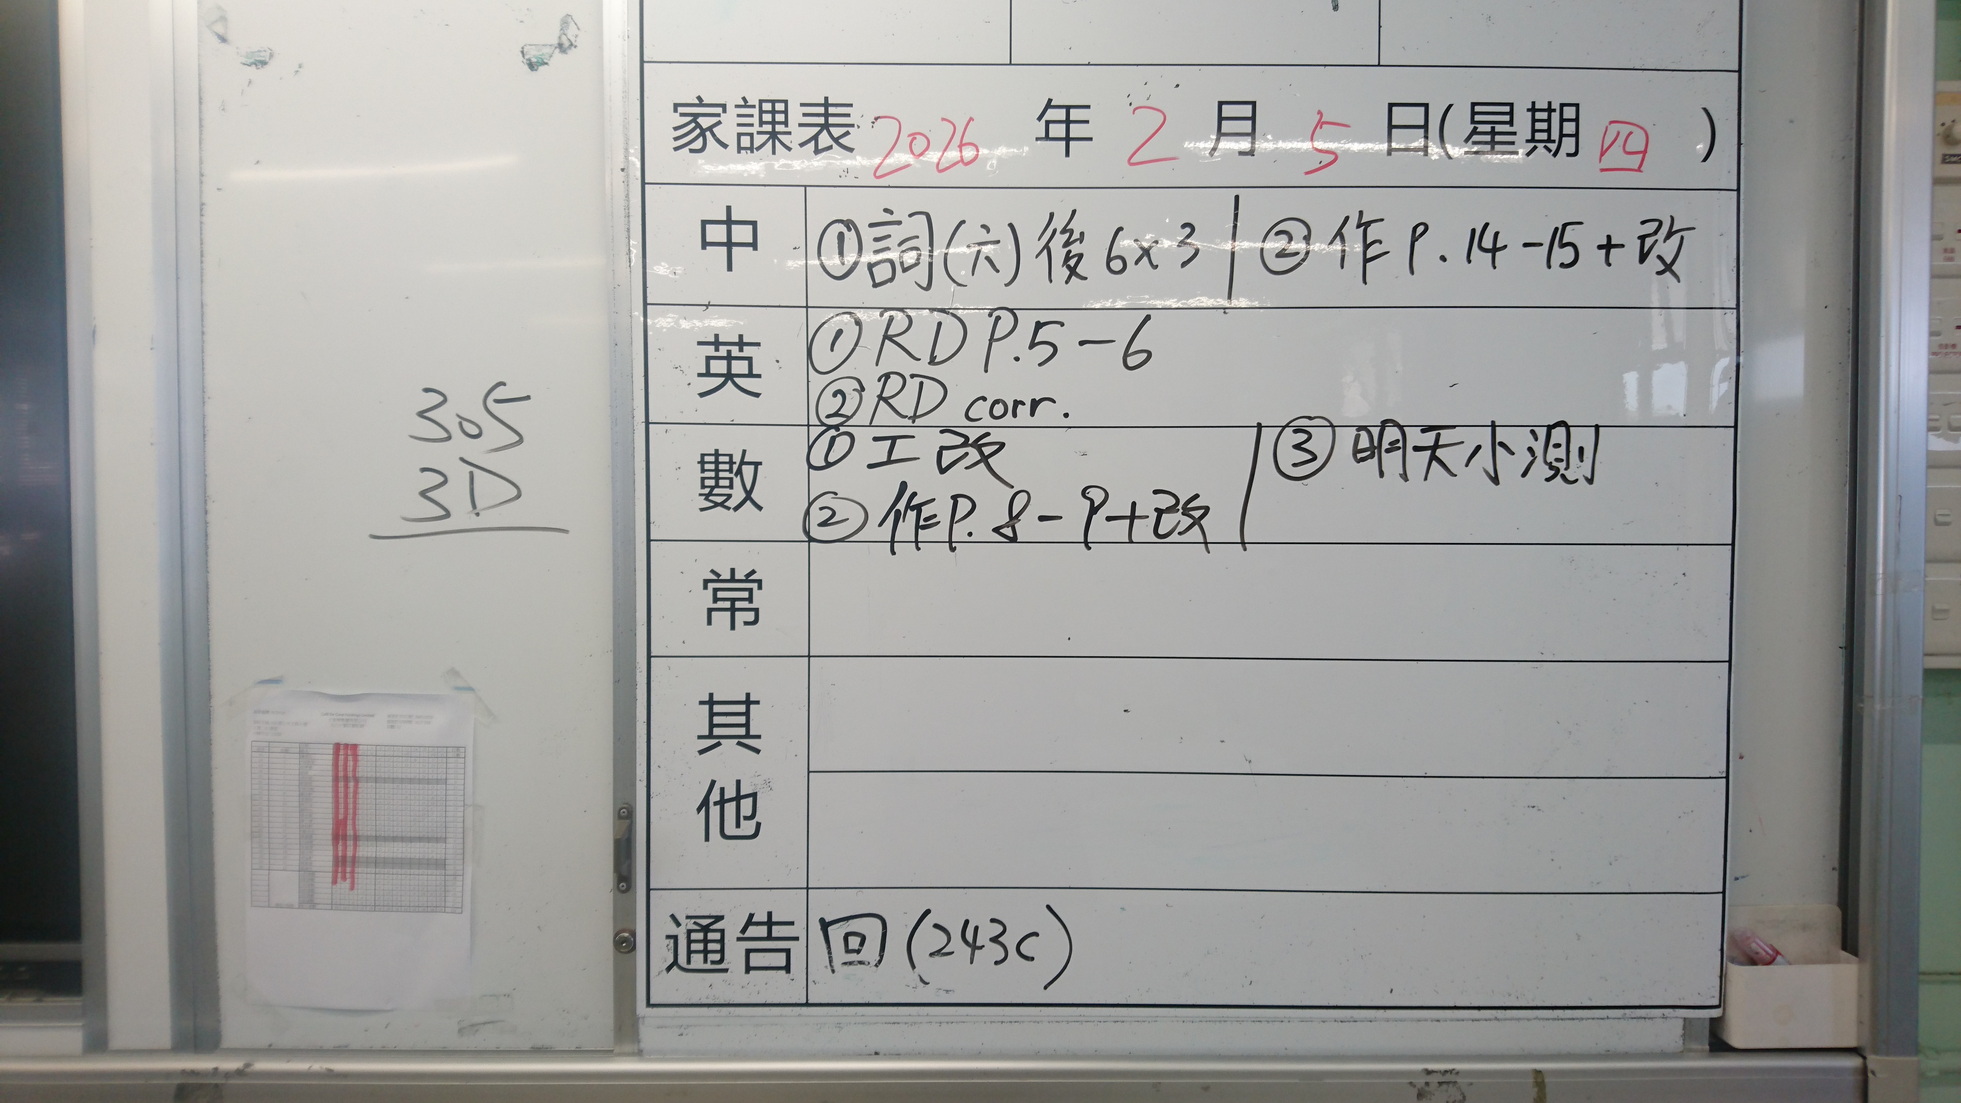 家課表 2026 年 2 月 5 日(星期 四 )
中 ①詞(六)後 6x3 | ②作 P.14-15+改
英 ① RD P.5-6
② RD corr.
數 ① 工改 | ③ 明天小測
② 作P. 8-9+改
常
其他
通告 回(243c)
305
3D